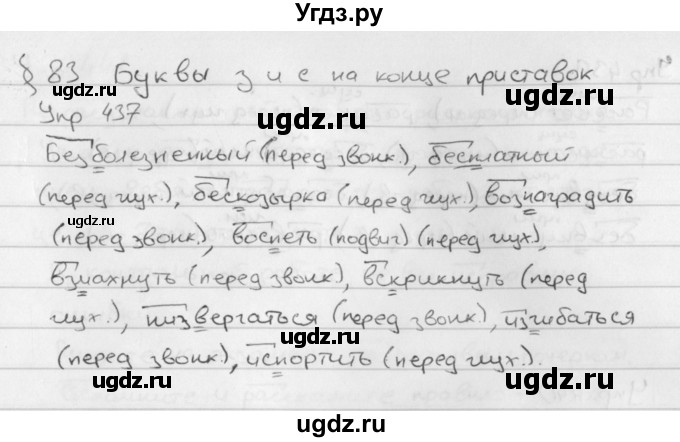 Угдз.ру
§ 83 Буквы з и с на конце приставок
Упр 437
ugdz.ru
ugdz.ru
Безболезненный (перед звонк.), бесплатный
ugdz.ru
(перед глух.), бескозырка (перед глух.), вознаградить
ugdz.ru
(перед звонк.), воспеть (подвиг) (перед глух.),
ugdz.ru
взмахнуть (перед звонк.), вскрикнуть (перед
ugdz.ru
глух.), низвергаться (перед звонк.), изгибаться
ugdz.ru
(перед звонк.), испортить (перед глух.).
ugdz.ru
ugdz.ru
ugdz.ru